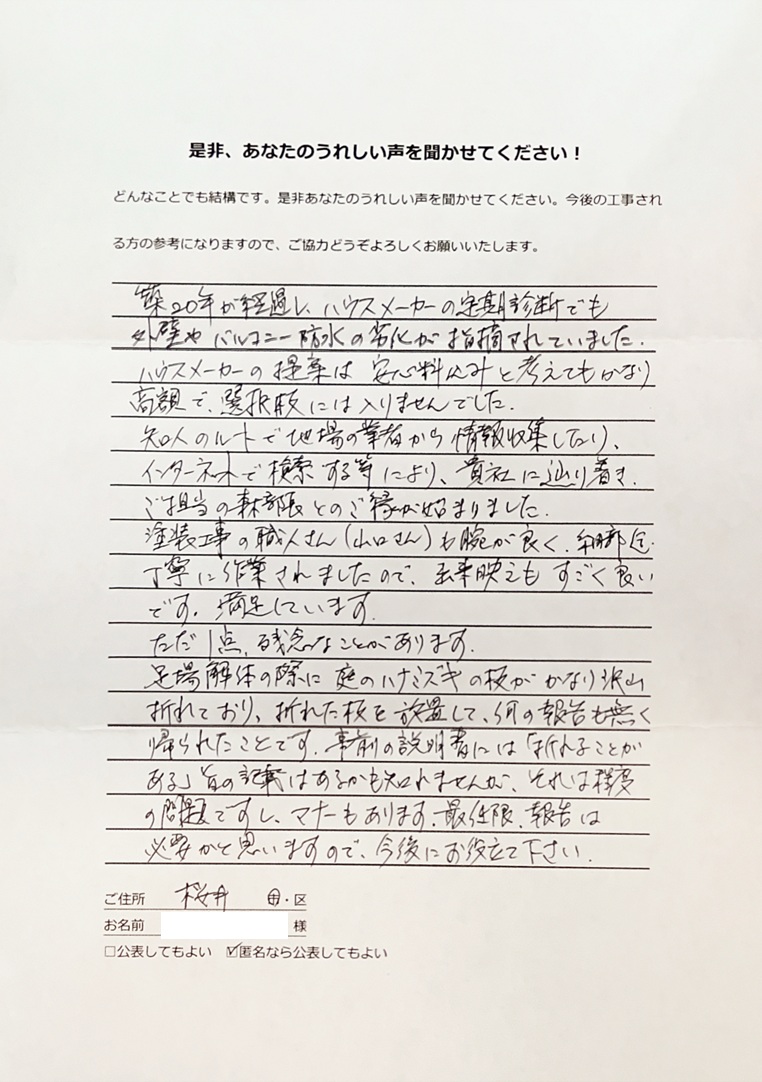 是非、あなたのうれしい声を聞かせてください！
どんなことでも結構です。是非あなたのうれしい声を聞かせてください。今後の工事され
る方の参考になりますので、ご協力どうぞよろしくお願いいたします。
築20年が経過し、ハウスメーカーの定期診断でも
外壁やバルコニー防水の劣化が指摘されていました.
ハウスメーカーの提案は安心料込みと考えてもかなり
高額で、選択肢には入りませんでした.
知人のルートで地場の業者から情報収集したり、
インターネットで検索する等により、貴社に辿り着き.
ご担当の森部長とのご縁が始まりました.
塗装工事の職人さん(山口さん)も腕が良く、細部迄
丁寧に作業されましたので、出来映えもすごく良い
です. 満足しています.
ただ1点、残念なことがあります.
足場解体の際に庭のハナミズキの枝がかなり沢山
折れており、折れた枝を放置して、何の報告も無く
帰られたことです. 事前の説明書には「折れることが
ある」旨の記載はあるかも知れませんが、それは程度
の問題ですし、マナーもあります. 最低限、報告は
必要かと思いますので、今後にお役立て下さい.
ご住所 桜井 市・区
お名前 様
□公表してもよい ☑匿名なら公表してもよい